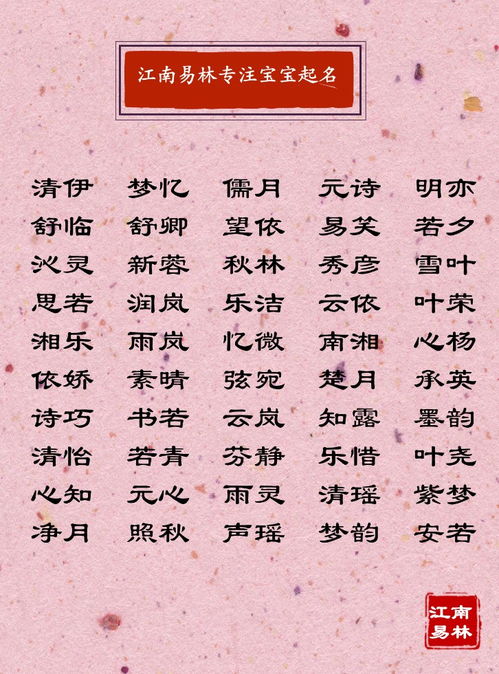 江南易林专注宝宝起名
清伊 梦忆 儒月 元诗 明亦
舒临 舒卿 望依 易笑 若夕
沁灵 新蓉 秋林 秀彦 雪叶
思若 润岚 乐洁 云依 叶荣
湘乐 雨岚 忆微 南湘 心杨
依娇 素晴 弦宛 楚月 承英
诗巧 书若 云岚 知露 墨韵
清怡 若青 芬静 乐惜 叶尧
心知 元心 雨灵 清瑶 紫梦
净月 照秋 声瑶 梦韵 安若
江南
易林